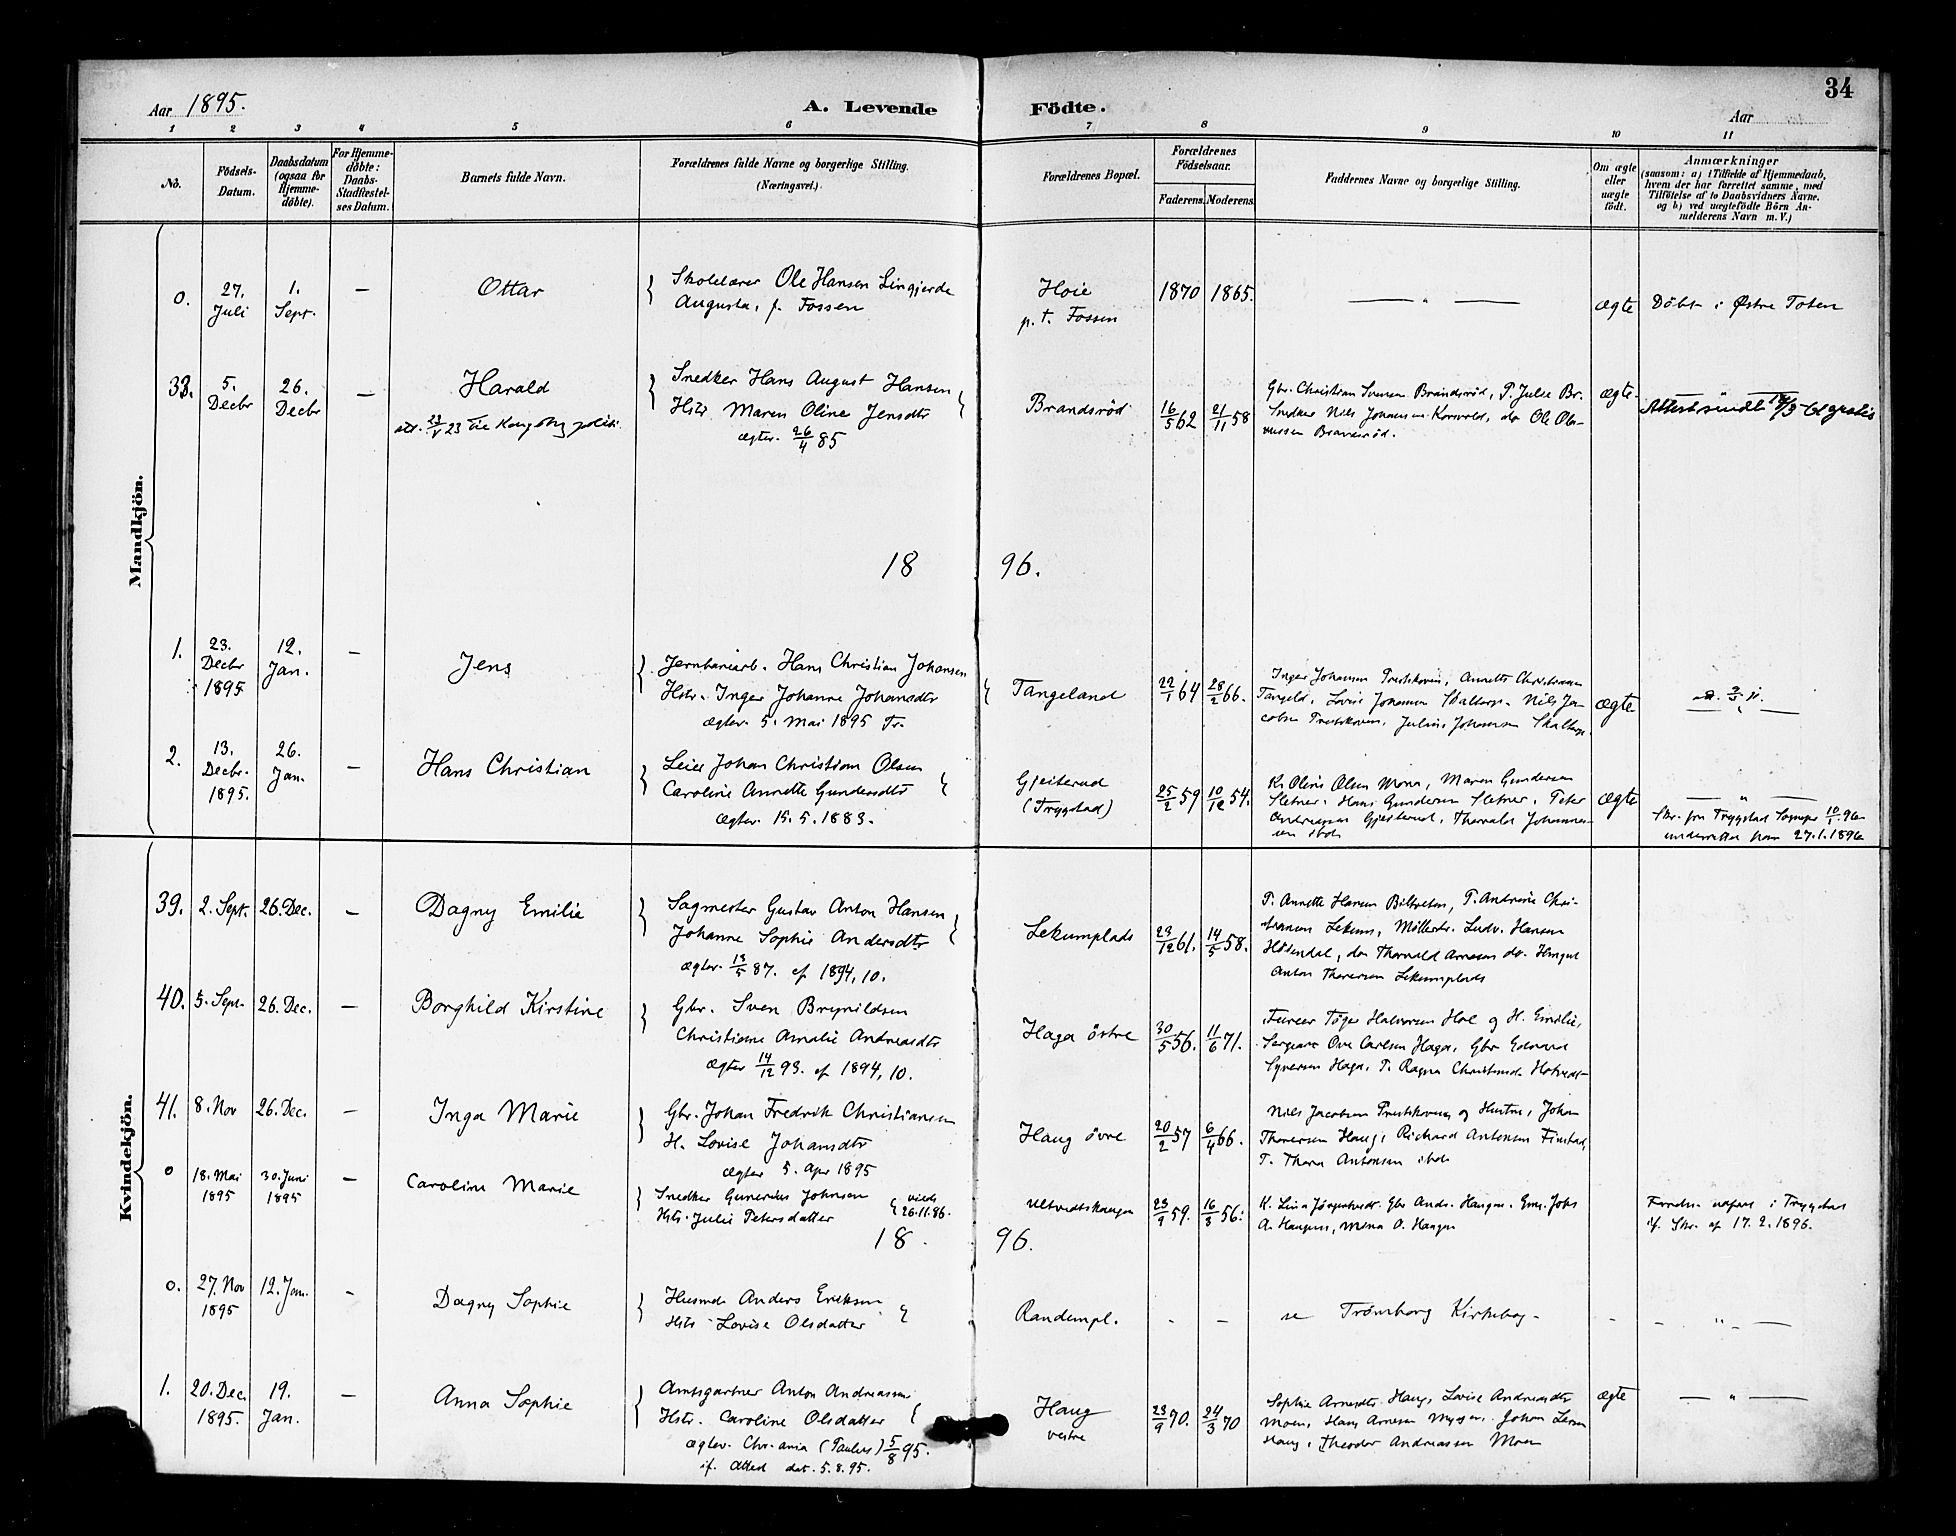 34
Aar 1895.
A. Levende Födte.
Aar
1 2 3 4 5 6 7 8 9 10 11
No.
Födsels-
Datum.
Daabsdatum
(ogsaa for
Hjemme-
döbte).
For Hjemme-
döbte:
Daabs-
Stadfæstel-
ses Datum.
Barnets fulde Navn.
Forældrenes fulde Navne og borgerlige Stilling.
(Næringsvei.)
Forældrenes Bopæl.
Forældrenes
Födselsaar.
Faderens. Moderens.
Faddernes Navne og borgerlige Stilling.
Om ægte
eller
uægte
födt.
Anmærkninger
(saasom: a) i Tilfælde af Hjemmedaab,
hvem der har forrettet samme, med
Tilföielse af to Daabsvidners Navne.
og b) ved uægtefödte Börn An-
melderens Navn m. V.)
Mandkjön.
0. 27. Juli
1. Sept.
—
Ottar
Skolelærer Ole Hansen Lingjerde
Augusta, f. Fossen
Hoie
p. t. Fossen
1870 1865.
— " —
ægte
Döbt i Østre Toten
38. 5. Decbr
26. Decbr
—
Harald
Snedker Hans August Hansen
Hstr Maren Oline Jensdtr
ægtev. 26/4 85
Brandsröd
16/5 62 21/11 58
Gbr. Christian Svensen Brandsröd, P. Julie Br.
Snedker Nils Johansen Korsvold, Ole Ole-
Brandsröd.
ægte.
Attest sendt gratis
18 96.
1. 23. Decbr 1895
12. Jan.
—
Jens
Jernbanearb. Hans Christian Johansen
Hstr. Inger Johanne Johansdtr
ægtev. 5. Mai 1895 Tr.
Tangeland
22/1 64 28/2 66.
Inger Johansen Prestskoven, Annette Christiansen
Tangeld, Lovise Johansen Skaltorp. Nils Ja-
cobsen Prestskoven, Julius Johansen Skaltorp.
ægte
— " —
2. 13. Decbr. 1895.
26. Jan.
—
Hans Christian
Leier Johan Christian Olsen
Caroline Annette Gundersdtr
ægtev. 15.5.1883.
Gjeiterud
(Trygstad)
25/2 59 10/12 54.
K. Oline Olsen Mona, Maren Gundersen
Sletner. Hans Gundersen Sletner. Peter
Andreassen Gjeiterud, Thorvald Johannes-
sen ibd.
ægte
— " —
Skr. fra Trygstad 10/1 96
underrettet herom 27.1.1896
Kvindekjön.
39. 2. Sept. 26. Dec. —
Dagny Emilie
Sagmester Gustav Anton Hansen
Johanne Sophie Andersdtr
ægtev. 13/5 87. cf 1894, 10.
Lekumplads
23/12 61. 14/5 58.
P. Annette Hansen Biltveten, P. Andrine Chri-
stiansen Lekum, Ludv. Hansen
Thorvald Arnesen
Anton Thoresen Lekumplads
40. 5. Sept. 26. Dec. —
Borghild Kirstine
Gbr. Sven Brynildsen
Christiane Amalie Andreasdtr
ægtev 14/12 93. cf 1894, 10.
Haga östre
30/5 56. 11/6 71.
Furer Halvorsen Hol og H. Emilie,
Sergeant Ove Carlsen Haga, Gbr Edvard
Syversen Haga, P. Ragna
41. 8. Nov 26. Dec. —
Inga Marie
Gbr. Johan Fredrik Christiansen
H. Lovise Johansdtr
ægtev 5. Apr 1895
Haug övre
20/2 57 6/4 66.
Nils Jacobsen Prestskoven og Hustru, Johan
Thoresen Haug, Richard Antonsen Finstad,
P. Thora Antonsen ibd.
0 18. Mai 1895 30. Juni 1895 —
Caroline Marie
Snedker Gunerius Johnsen
Hstr. Julie Petersdatter
viede 26.11.86.
Ultvedtshaugen
23/9 59. 16/3 56.
K. Lina Jörgentvedt. Gbr Ands. Haugen. Em. Johs
A. Haugen, Mona O. Haugen
i Trygstad
if. Skr. af 17.2.1896.
18. 96.
0. 27. Nov 1895 12. Jan. -
Dagny Sophie
Husmd Anders Eriksen
Hstr Lovise Olsdatter
Randempl.
- —
se Trömborg Kirkebog -
- - " —
1. 20. Dec. 1895. 19. Jan. —
Anna Sophie
Amtsgartner Anton Andreassen
Hstr. Caroline Olsdatter
ægtev. Chr.ania (Paulus) 5/8 95.
if. Attest dat. 5.8.95.
Haug
vestre
23/9 70. 24/3 70
Sophie Arnesdtr. Haug, Lovise Andreasdtr
Moen, Hans Arnesen Mysen, Johan
Haug, Theodor Andreassen Moen
ægte
— " —